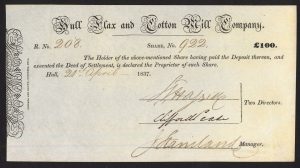 Hull Flax and Cotton Mill Company.
R. No. 208. SHARE, No. 922. £100.
The Holder of the above-mentioned Share having paid the Deposit thereon, and
executed the Deed of Settlement, is declared the Proprietor of each Share.
Hull, 20th April 1837.
Alfred
Two Directors.
Manager.